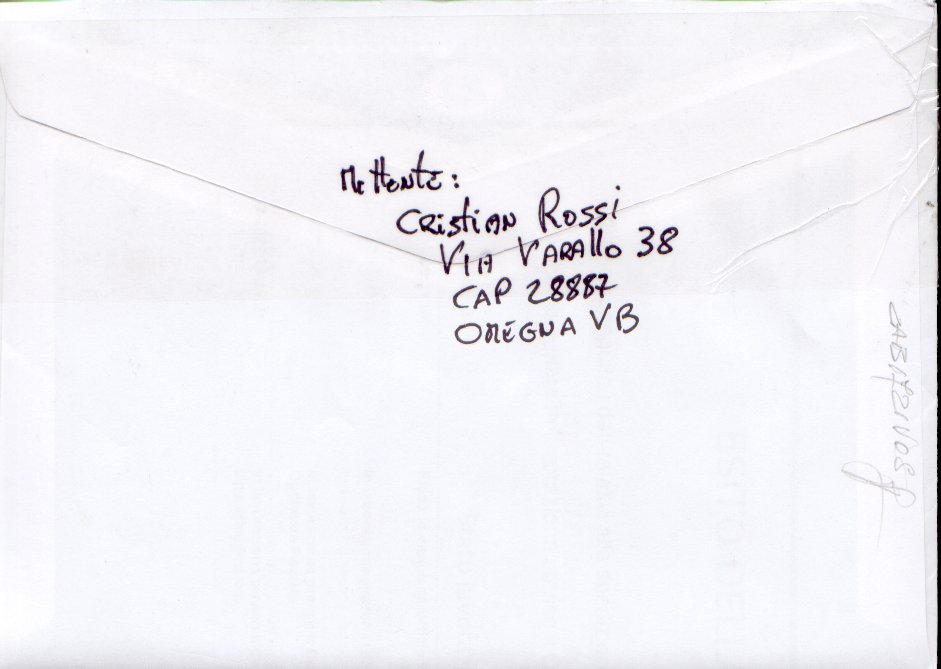 Mittente:
Cristian Rossi
Via Varallo 38
CAP 28887
OMEGNA VB